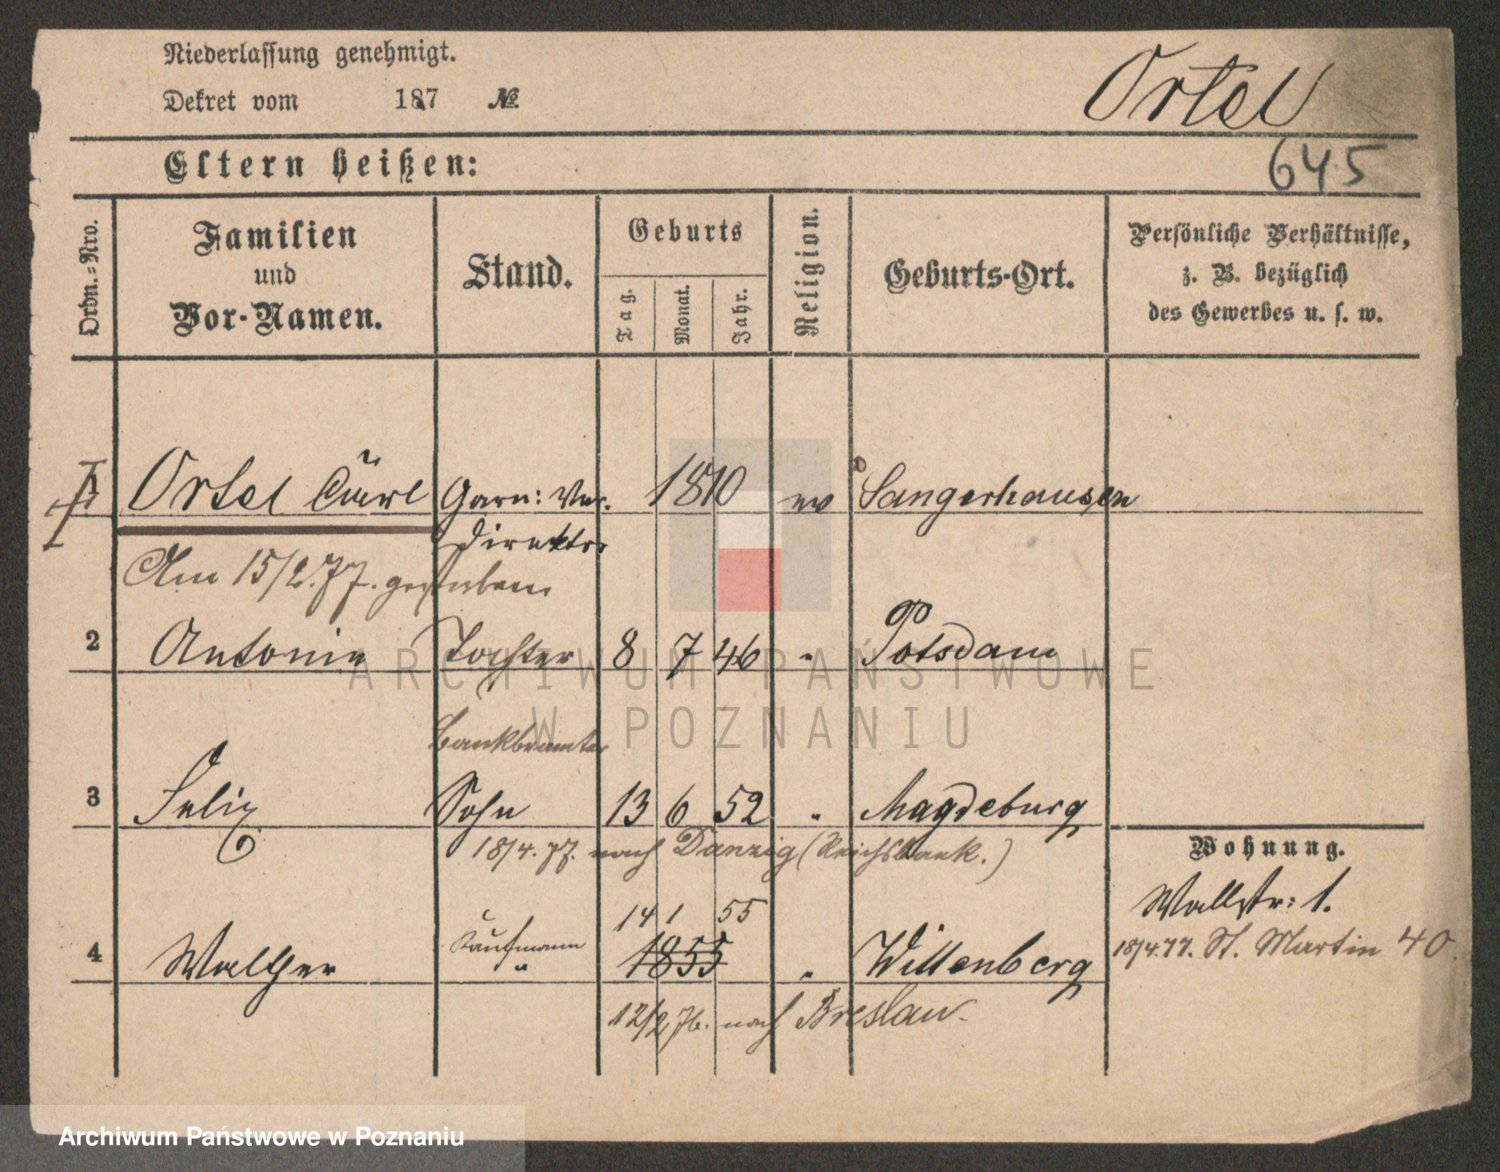 Niederlassung genehmigt.
Dekret vom 187 №
Ortel
Eltern heißen:
645
Ordn.=Nro.
Familien
und
Vor-Namen.
Stand.
Geburts
Tag.
Monat.
Jahr.
Religion.
Geburts-Ort.
Persönliche Verhältnisse,
z. B. bezüglich
des Gewerbes u. s. w.
1 Ortel Carl Garn: Ver. 1810 ev Sangerhausen
Direktor
Am 15/2.77. gestorben
2 Antonie Tochter 8 7 46 " Potsdam
Bankbeamter
3 Felix Sohn 13 6 52 " Magdeburg
18/4.77. nach Danzig (Reichsbank.)
Wohnung.
Wallstr: 1.
14 1 55
4 Walther Kaufmann 1855 " Wittenberg
"
18/4.77. St. Martin 40.
12/2 76. nach Breslau.
ARCHIWUM PAŃSTWOWE
W POZNANIU
Archiwum Państwowe w Poznaniu